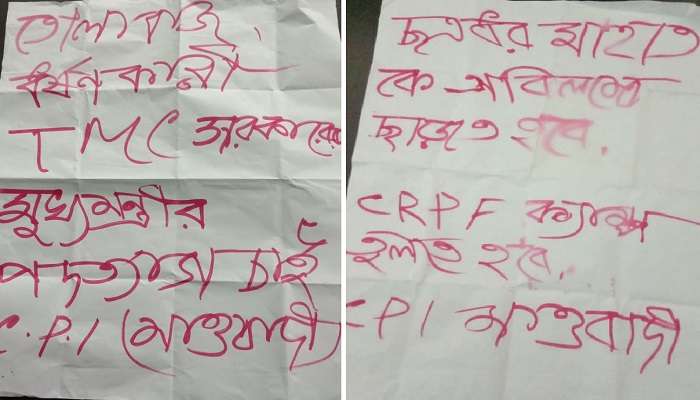 তোলাবাজ,
ধর্ষণকারী
TMC সরকারের
মুখ্যমন্ত্রীর
পদত্যাগ চাই
C.P.I (মাওবাদী)
ছত্রধর মাহাত
কে অবিলম্বে
ছাড়তে হবে.
CRPF ক্যাম্প
তুলতে হবে.
CPI মাওবাদী